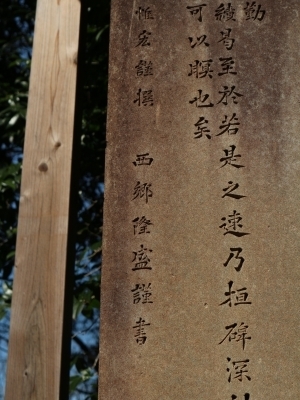 勤
績曷至於若是之速乃桓碑深
可以瞑也矣
惟宏謹撰 西郷隆盛謹書